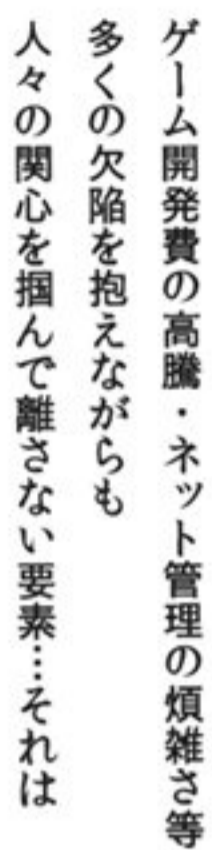 ゲーム開発費の高騰・ネット管理の煩雑さ等
多くの欠陥を抱えながらも
人々の関心を掴んで離さない要素…それは